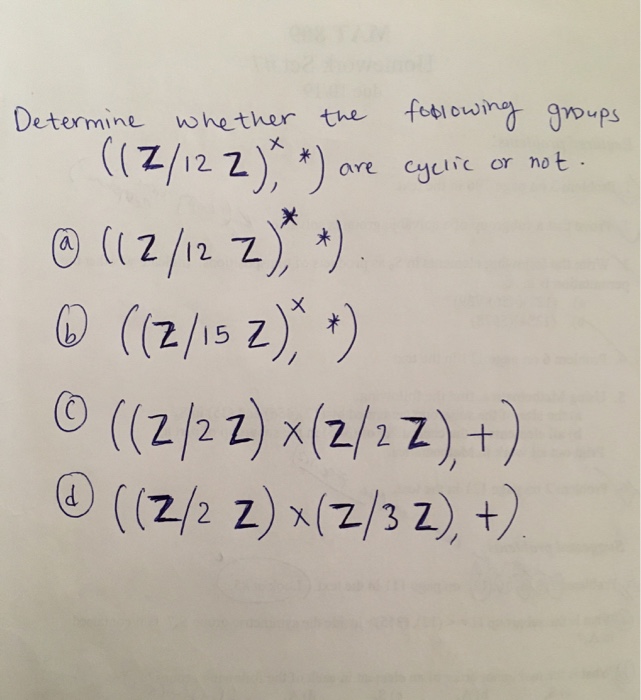 Determine whether the following groups
((Z/12 Z)^×, *) are cyclic or not.
ⓐ ((Z/12 Z)^*, *).
ⓑ ((Z/15 Z)^×, *)
ⓒ ((Z/2 Z) × (Z/2 Z), +)
ⓓ ((Z/2 Z) × (Z/3 Z), +).